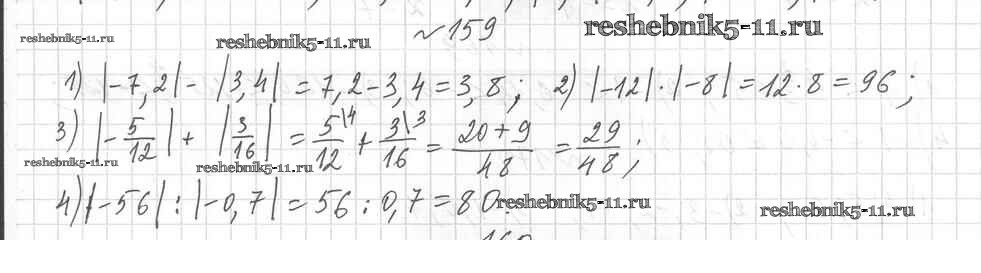 №159 reshebnik5-11.ru
reshebnik5-11.ru reshebnik5-11.ru
1) |-7,2| - |3,4| = 7,2-3,4 = 3,8; 2) |-12|·|-8| = 12·8 = 96;
3) |-5/12| + |3/16| = 5\4/12 + 3\3/16 = 20+9/48 = 29/48;
reshebnik5-11.ru reshebnik5-11.ru
4) |-56| : |-0,7| = 56:0,7 = 80. reshebnik5-11.ru
reshebnik5-11.ru